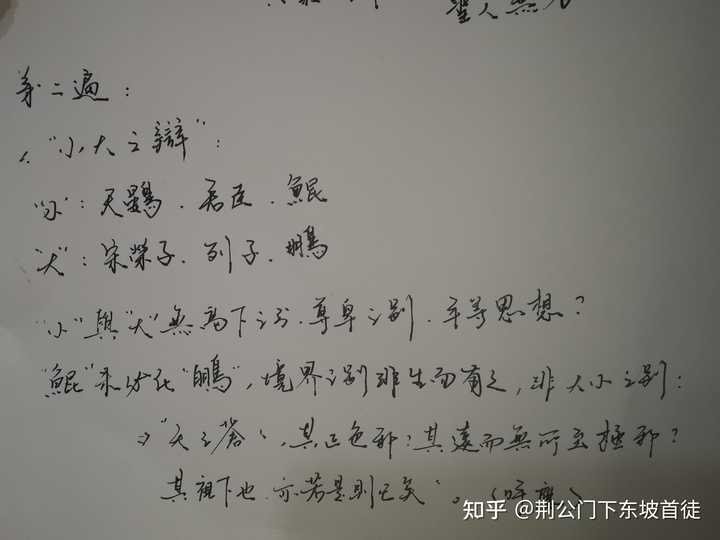 聖人無
第二遍：
1. “小大之辯”：
“小”：天鷃、君臣、鯤
“大”：宋榮子、列子、鵬
“小”與“大”無高下之分、尊卑之别、平等思想？
“鯤”亦可化“鵬”，境界之别非生而有之，非大小之别：
“天之蒼々，其正色邪？其遠而無所至極邪？
其視下也，亦若是則已矣”。（呼應）
知乎 @荆公门下东坡首徒